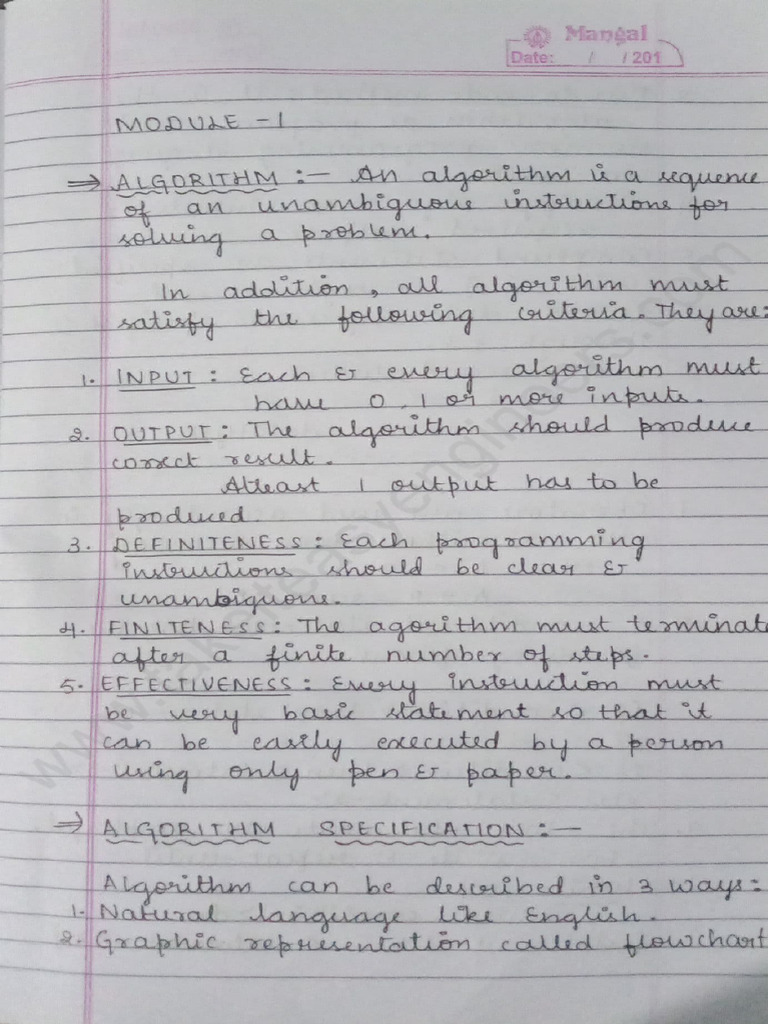 Mangal
Date: / / 201
MODULE - 1
⇒ ALGORITHM :- An algorithm is a sequence
of an unambiguous instructions for
solving a problem.
In addition, all algorithm must
satisfy the following criteria. They are:
1. INPUT : Each & every algorithm must
have 0, 1 or more inputs.
2. OUTPUT : The algorithm should produce
correct result.
Atleast 1 output has to be
produced.
3. DEFINITENESS : Each programming
instructions should be clear &
unambiguous.
4. FINITENESS : The agorithm must terminate
after a finite number of steps.
5. EFFECTIVENESS : Every instruction must
be very basic statement so that it
can be easily executed by a person
using only pen & paper.
⇒ ALGORITHM SPECIFICATION :-
Algorithm can be described in 3 ways:
1. Natural language like English.
2. Graphic representation called flowchart